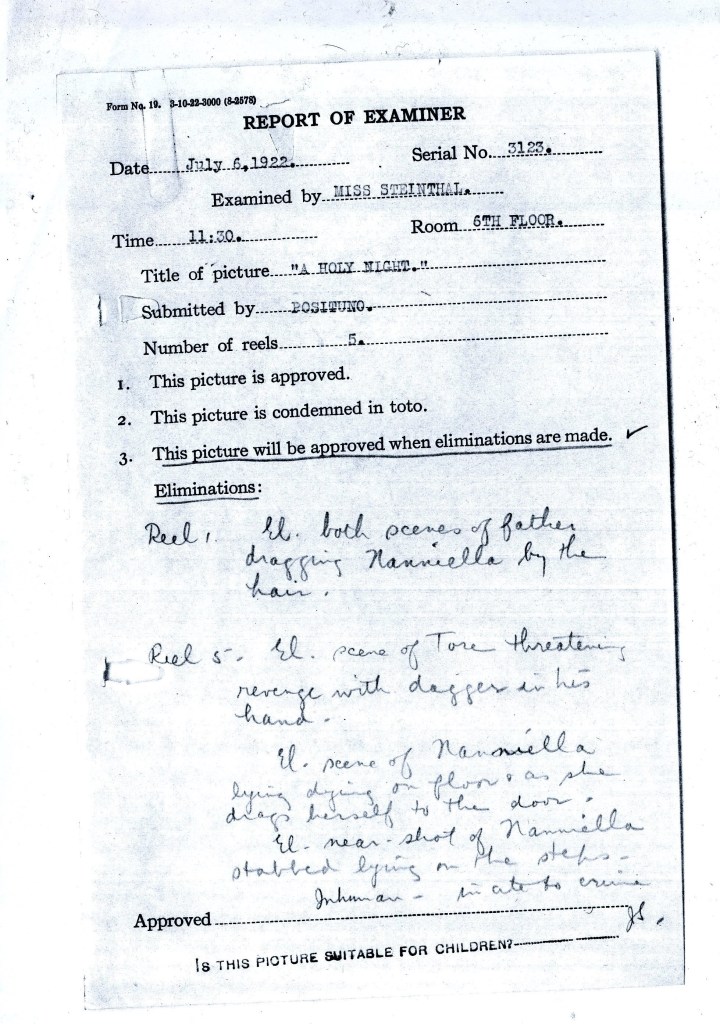 Form No. 19. 3-10-22-3000 (8-2578)
REPORT OF EXAMINER
Date July 6, 1922. Serial No. 3123.
Examined by MISS STEINTHAL.
Time 11:30. Room 6TH FLOOR.
Title of picture "A HOLY NIGHT."
Submitted by POSITUNO.
Number of reels 5.
1. This picture is approved.
2. This picture is condemned in toto.
3. This picture will be approved when eliminations are made. ✓
Eliminations:
Reel 1. El. both scenes of father
dragging Nanniella by the
hair.
Reel 5. El. scene of Tore threatening
revenge with dagger in his
hand.
El. scene of Nanniella
lying dying on floor & as she
drags herself to the door.
El. near-shot of Nanniella
stabbed lying on the steps.
Inhuman - incite to crime
Approved
JS.
IS THIS PICTURE SUITABLE FOR CHILDREN?